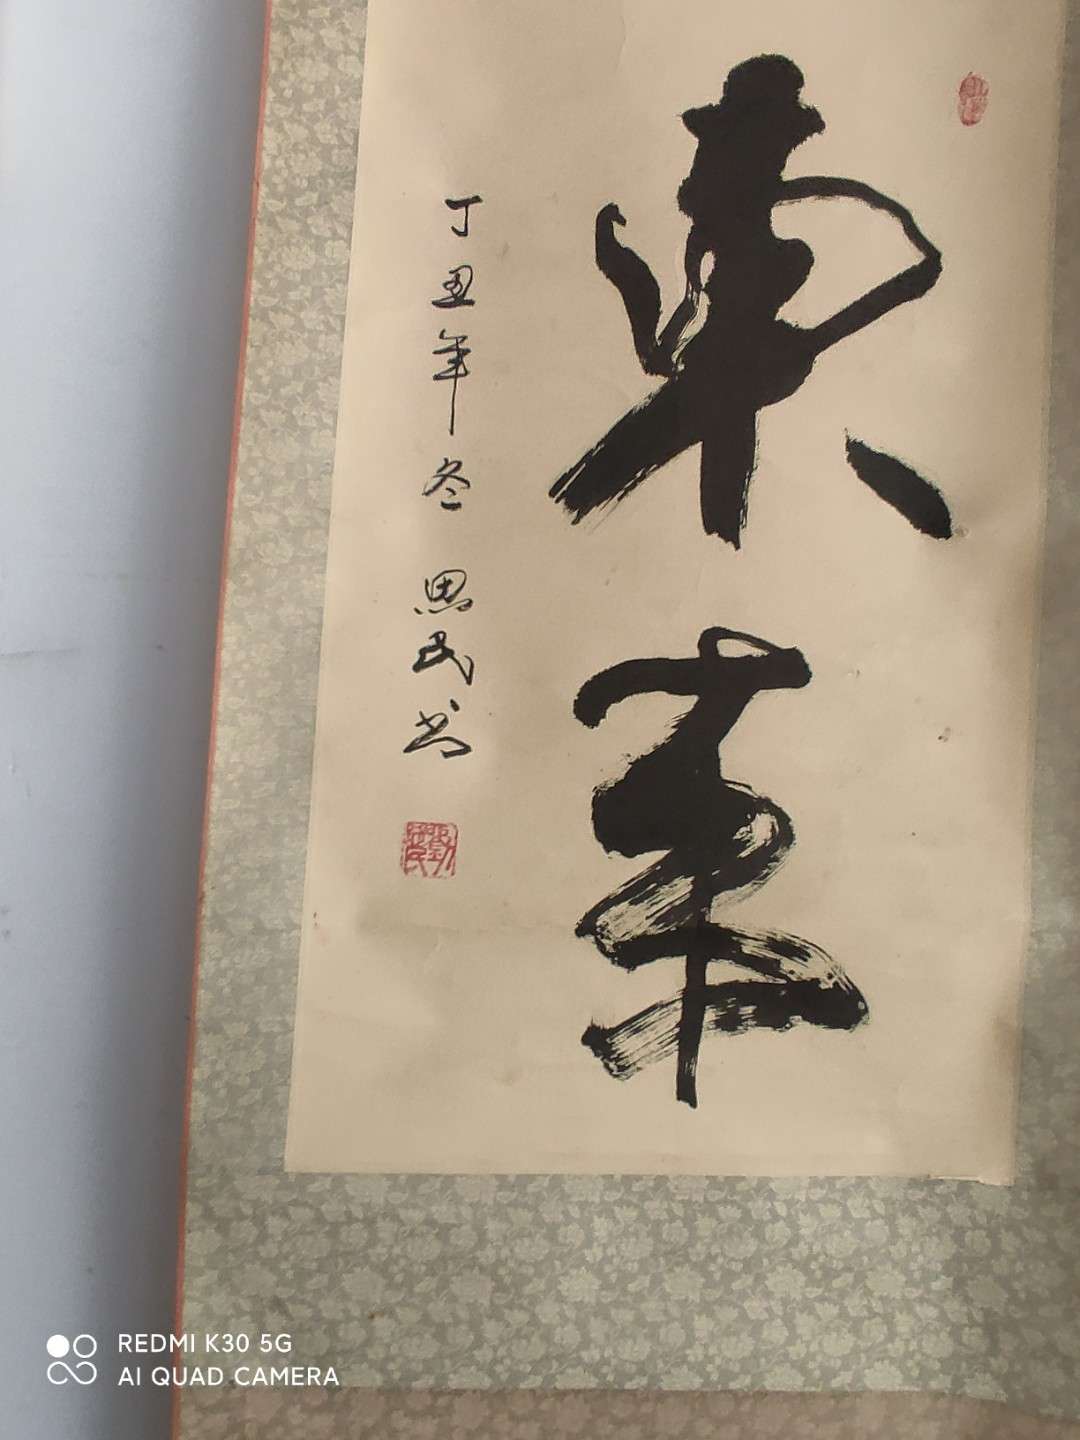 東来
丁丑年冬 思民书
REDMI K30 5G
AI QUAD CAMERA